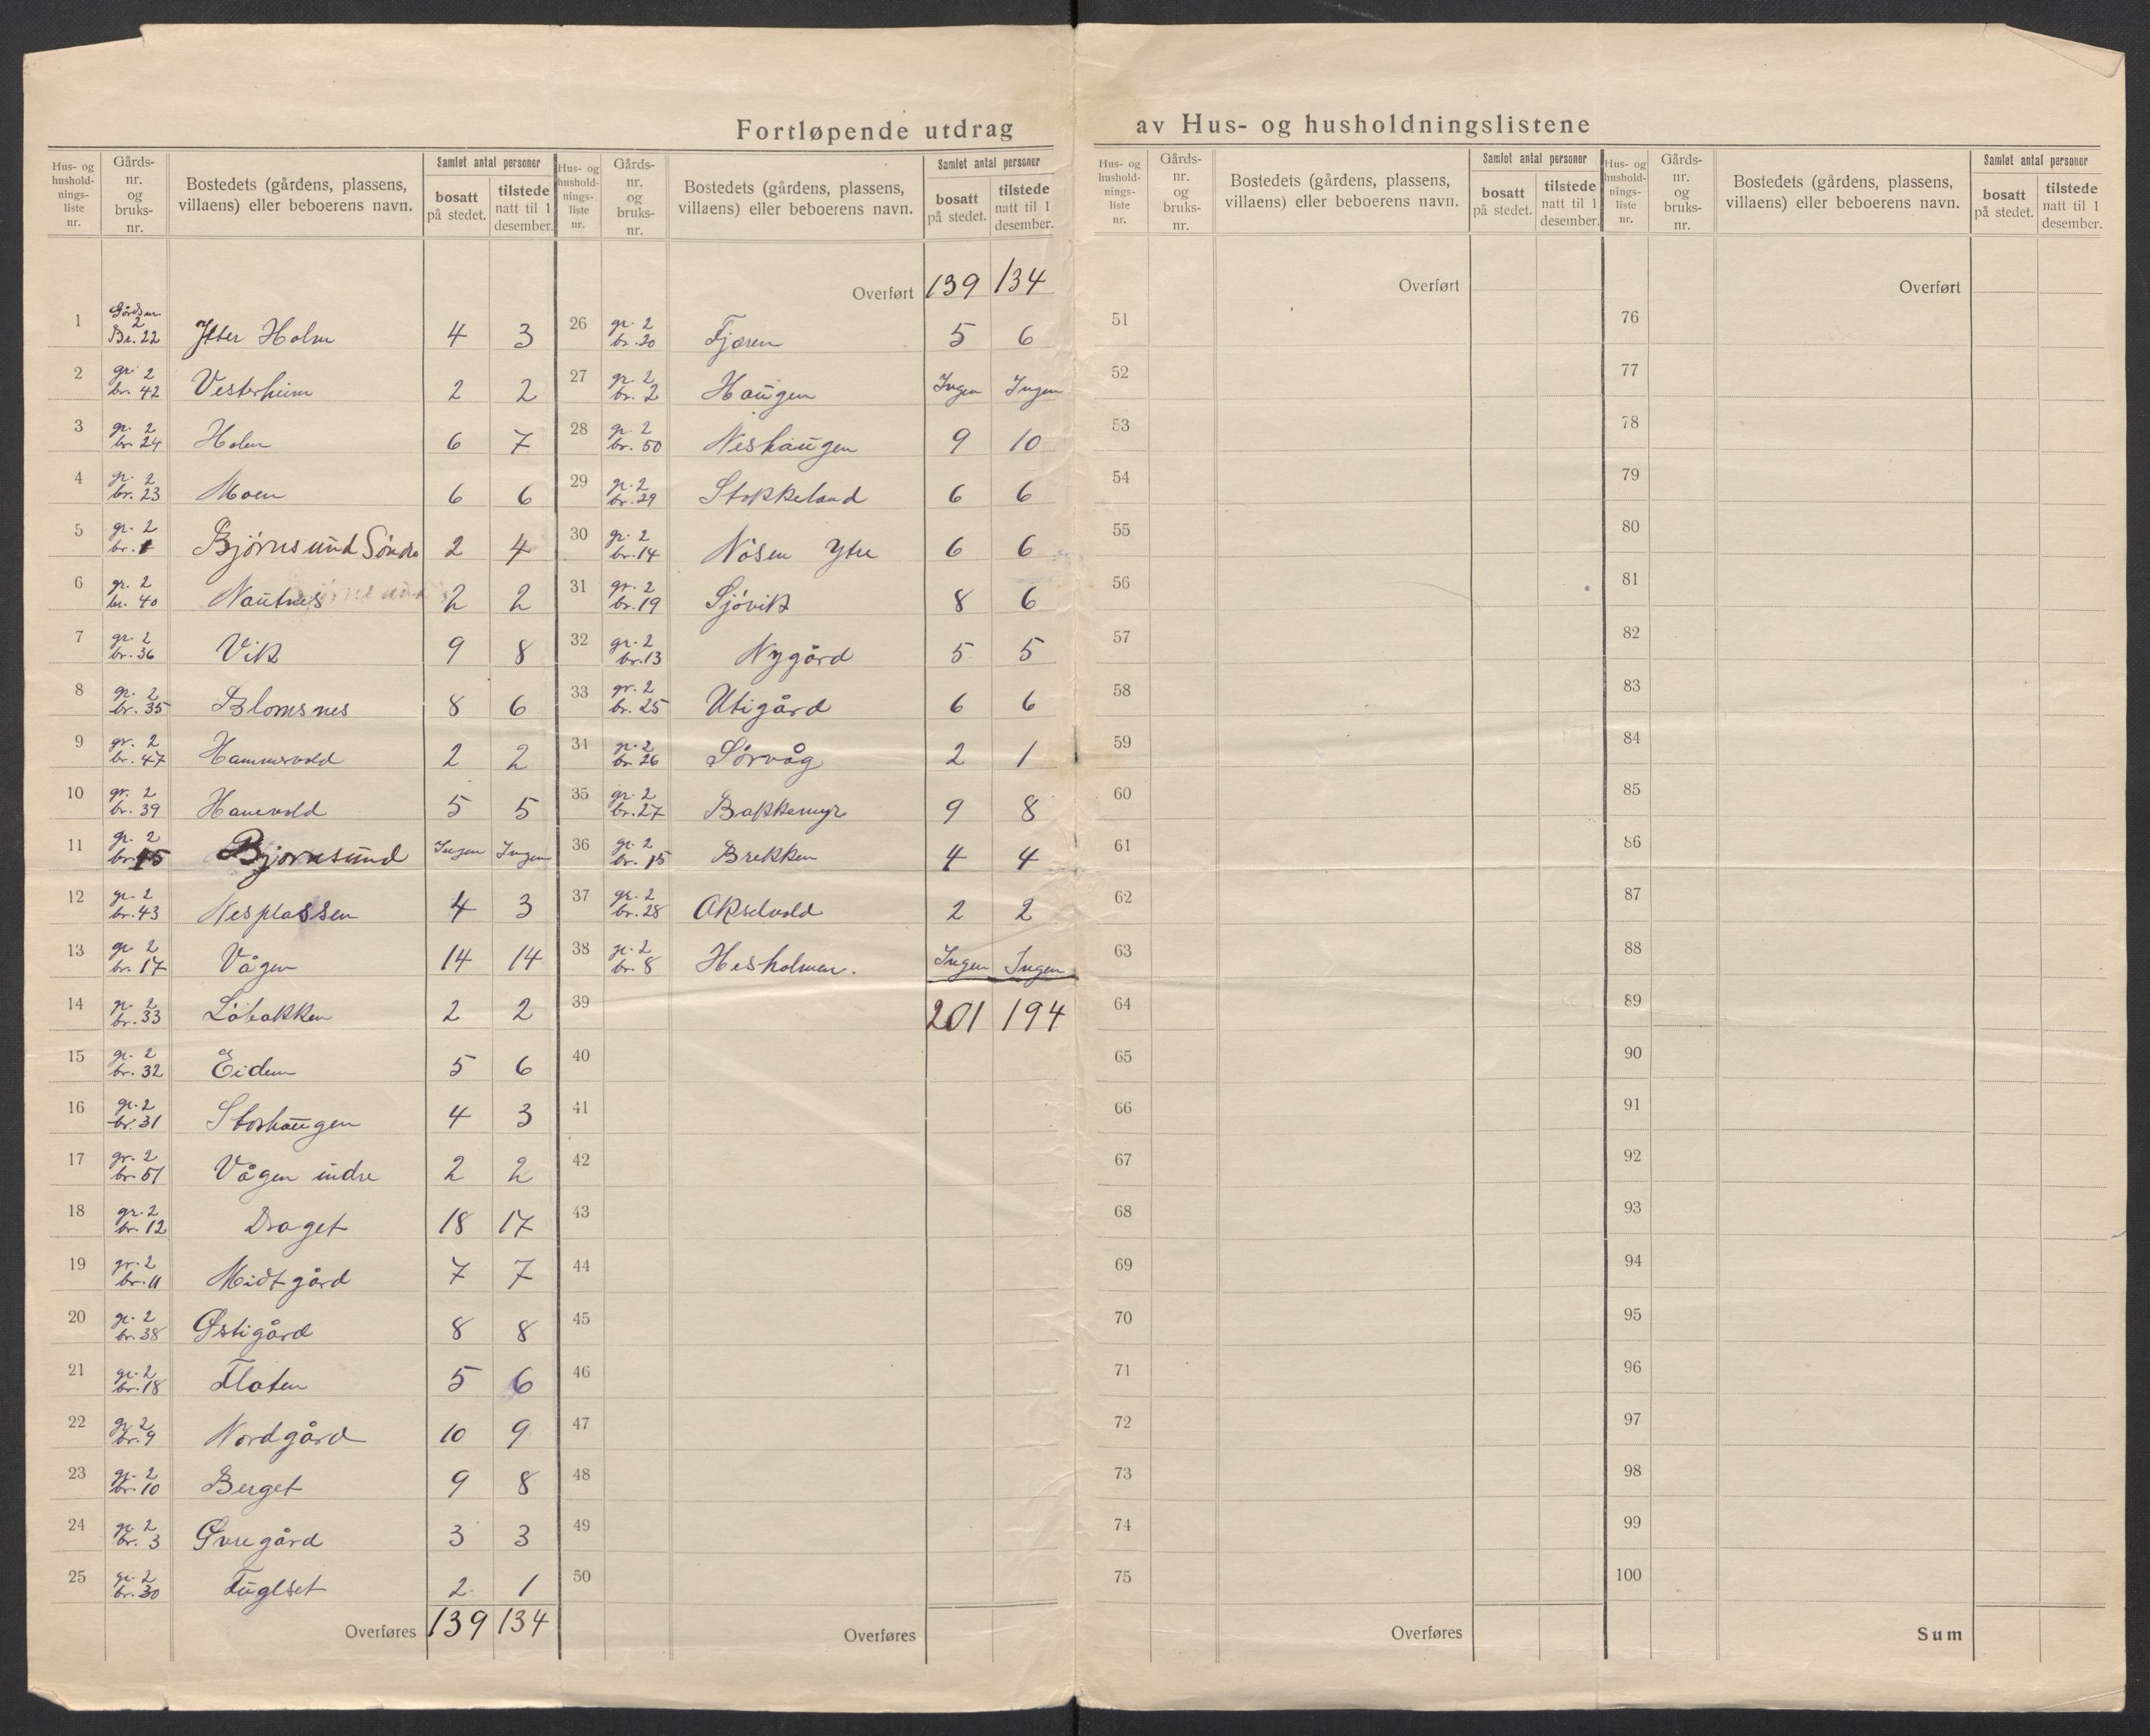 Fortløpende utdrag av Hus- og husholdningslistene
Hus- og husholdnings-liste nr. Gårds-nr. og bruks-nr. Bostedets (gårdens, plassens, villaens) eller beboerens navn. Samlet antal personer bosatt på stedet. tilstede natt til 1 desember.
1 Gårdsnr 2 Br. 22 Ytter Holm 4 3
2 gr. 2 br. 42 Vesterheim 2 2
3 gr. 2 br. 24 Holm 6 7
4 gr. 2 br. 23 Moen 6 6
5 gr. 2 br. 1 Bjørnsund Söndre 2 4
6 gr. 2 br. 40 Nautnes 2 2
7 gr. 2 br. 36 Vik 9 8
8 gr. 2 br. 35 Blomsnes 8 6
9 gr. 2 br. 47 Hammervold 2 2
10 gr. 2 br. 39 Hanevold 5 5
11 gr. 2 br. 15 Bjørnsund Ingen Ingen
12 gr. 2 br. 43 Nesplassen 4 3
13 gr. 2 br. 17 Vågen 14 14
14 gr. 2 br. 33 Löbakken 2 2
15 gr. 2 br. 32 Eidem 5 6
16 gr. 2 br. 31 Storhaugen 4 3
17 gr. 2 br. 51 Vågen indre 2 2
18 gr. 2 br. 12 Draget 18 17
19 gr. 2 br. 11 Midtgård 7 7
20 gr. 2 br. 38 Østigård 8 8
21 gr. 2 br. 18 Flaten 5 6
22 gr. 2 br. 9 Nordgård 10 9
23 gr. 2 br. 10 Berget 9 8
24 gr. 2 br. 3 Øvregård 3 3
25 gr. 2 br. 30 Fuglset 2 1
Overføres 139 134
Hus- og husholdnings-liste nr. Gårds-nr. og bruks-nr. Bostedets (gårdens, plassens, villaens) eller beboerens navn. Samlet antal personer bosatt på stedet. tilstede natt til 1 desember.
Overført 139 134
26 gr. 2 br. 20 Fjæren 5 6
27 gr. 2 br. 2 Haugen Ingen Ingen
28 gr. 2 br. 50 Neshaugen 9 10
29 gr. 2 br. 29 Stokkeland 6 6
30 gr. 2 br. 14 Nösen Ytre 6 6
31 gr. 2 br. 19 Sjövik 8 6
32 gr. 2 br. 13 Nygård 5 5
33 gr. 2 br. 25 Utigård 6 6
34 gr. 2 br. 26 Sörvåg 2 1
35 gr. 2 br. 27 Bakkemyr 9 8
36 gr. 2 br. 15 Brekken 4 4
37 gr. 2 br. 28 Akselvold 2 2
38 gr. 2 br. 8 Hesholmen. Ingen Ingen
39 201 194
40
41
42
43
44
45
46
47
48
49
50
Overføres
Hus- og husholdnings-liste nr. Gårds-nr. og bruks-nr. Bostedets (gårdens, plassens, villaens) eller beboerens navn. Samlet antal personer bosatt på stedet. tilstede natt til 1 desember.
Overført
51
52
53
54
55
56
57
58
59
60
61
62
63
64
65
66
67
68
69
70
71
72
73
74
75
Overføres
Hus- og husholdnings-liste nr. Gårds-nr. og bruks-nr. Bostedets (gårdens, plassens, villaens) eller beboerens navn. Samlet antal personer bosatt på stedet. tilstede natt til 1 desember.
Overført
76
77
78
79
80
81
82
83
84
85
86
87
88
89
90
91
92
93
94
95
96
97
98
99
100
Sum